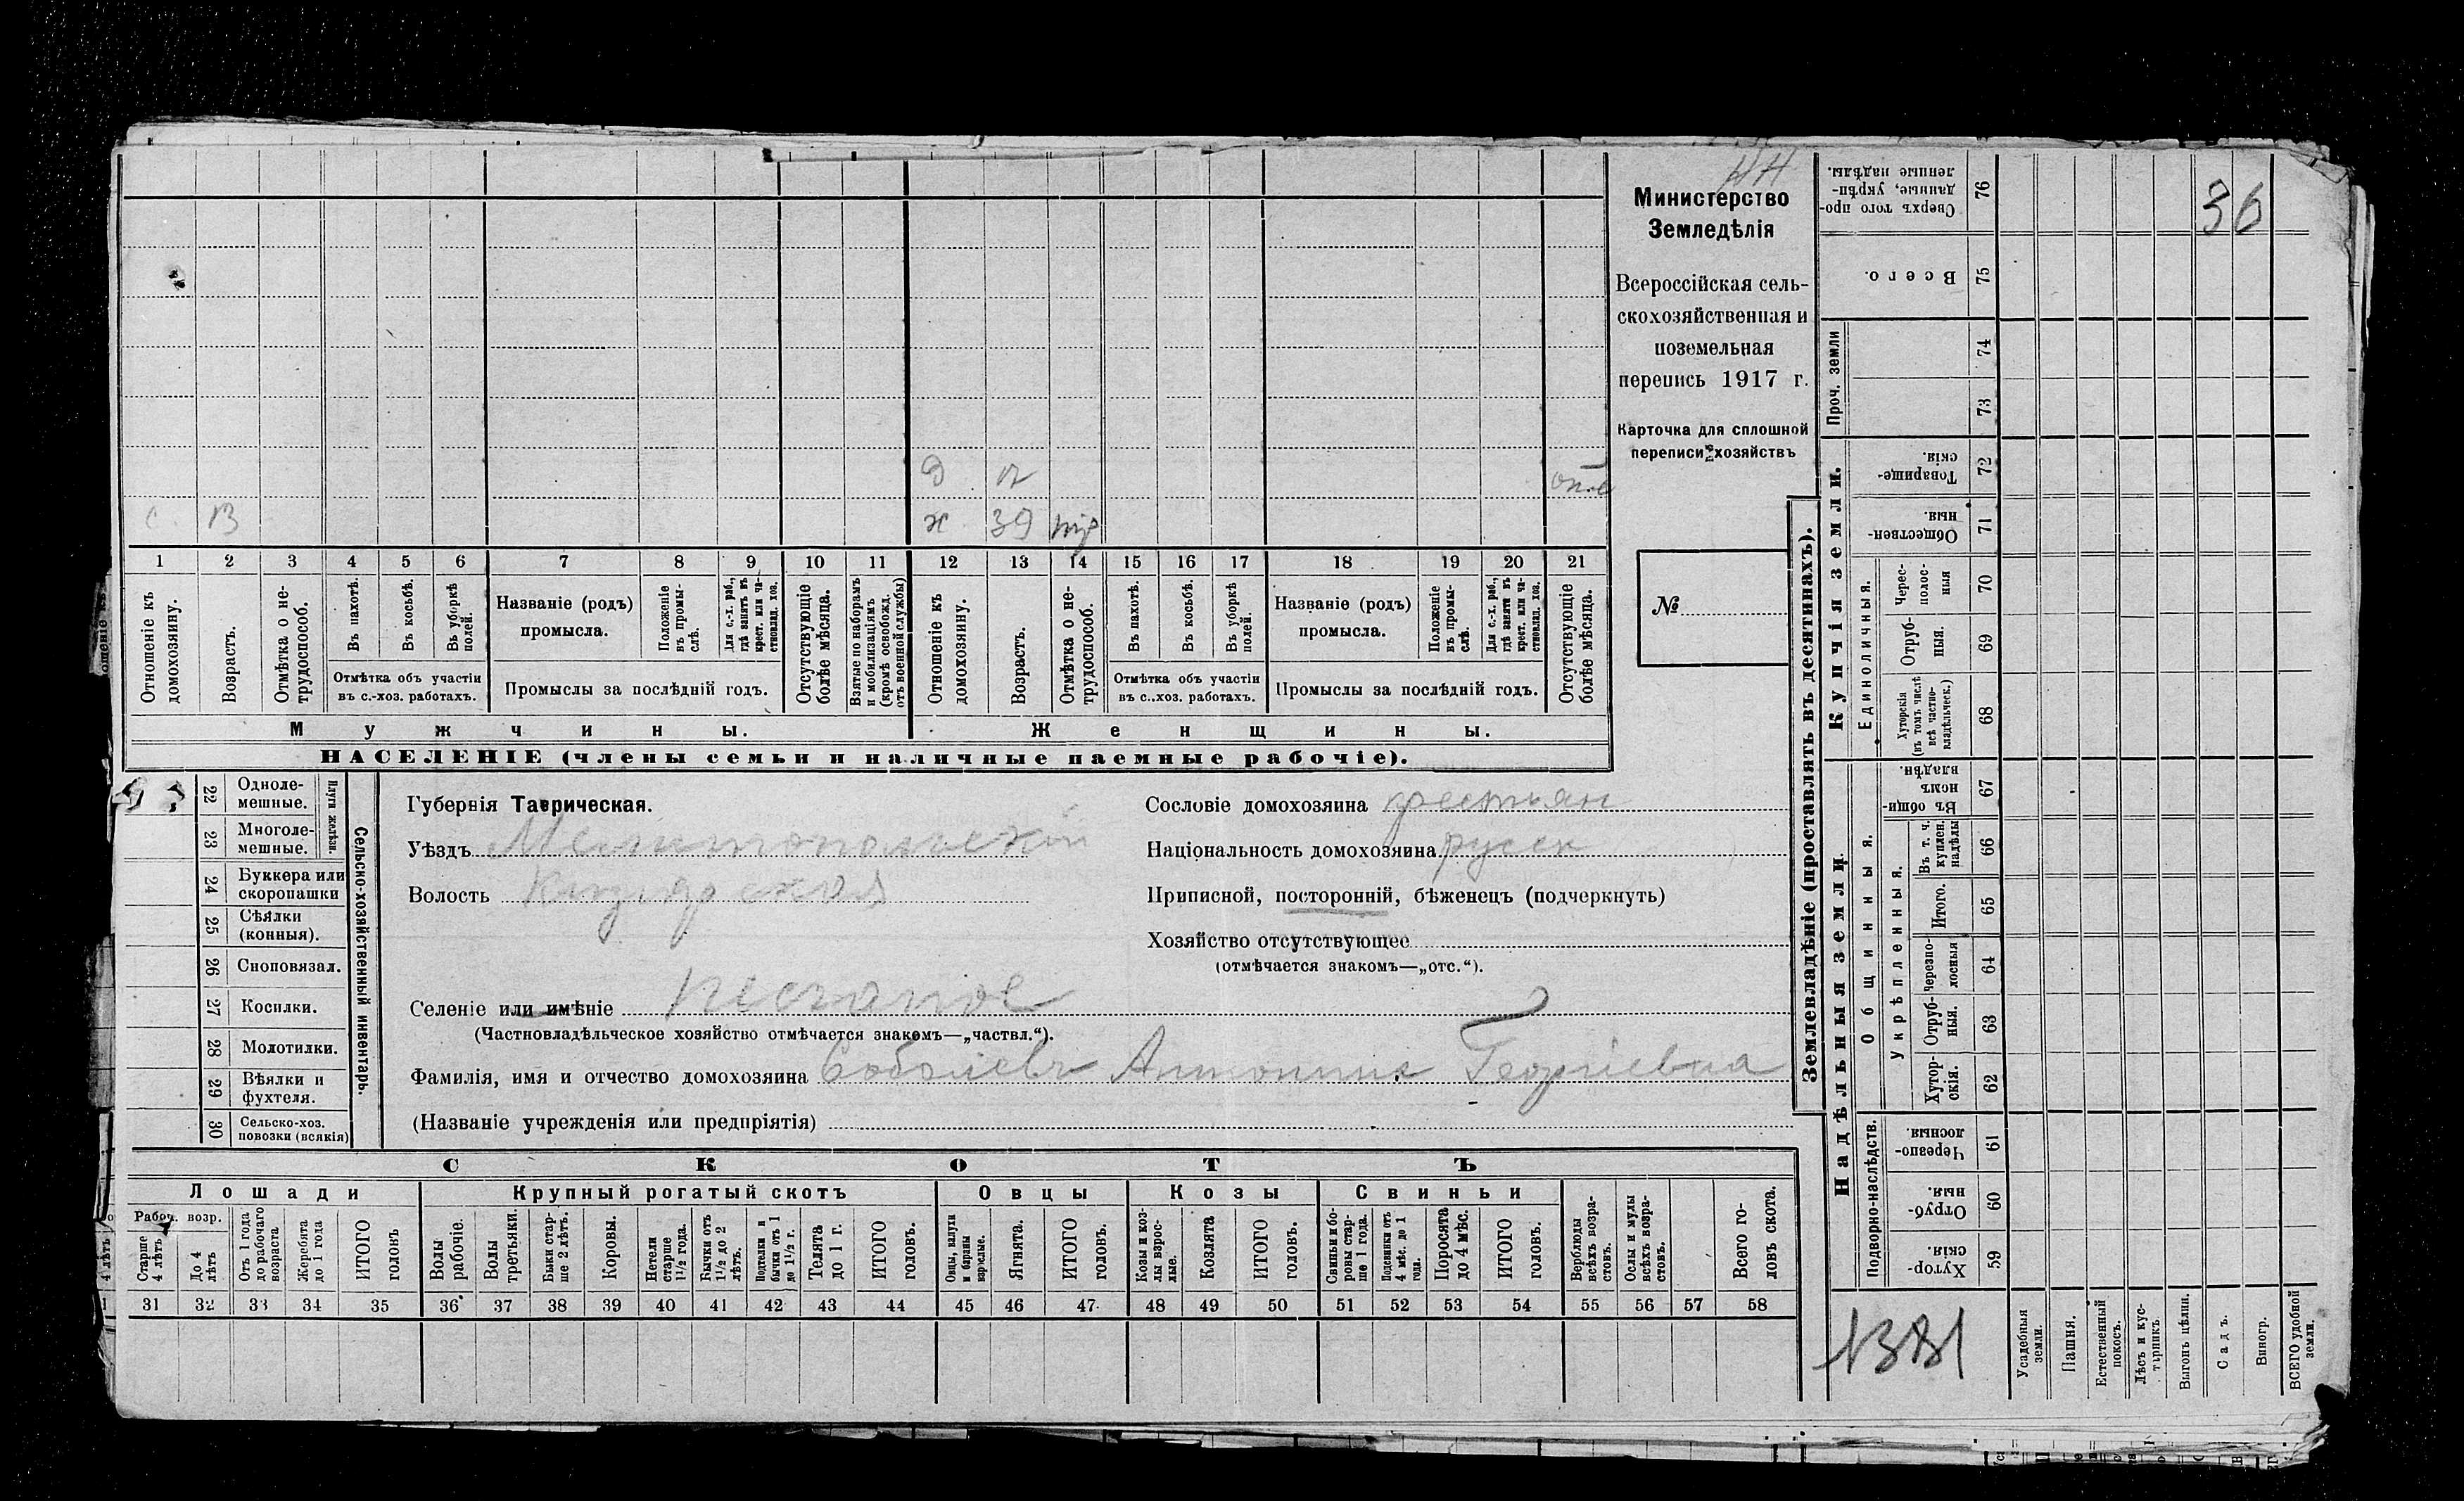 Министерство
Земледѣлія
Всероссійская сель-
скохозяйственная и
поземельная
перепись 1917 г.
Карточка для сплошной
переписи хозяйствъ
№
д 12 отс
с. 13 ж 39 тр
1 2 3 4 5 6 7 8 9 10 11 12 13 14 15 16 17 18 19 20 21
Отношеніе къ домохозяину.
Возрастъ.
Отмѣтка о не-трудоспособ.
Въ пахотѣ.
Въ косьбѣ.
Въ уборкѣ полей.
Отмѣтка объ участіи
въ с.-хоз. работахъ.
Названіе (родъ)
промысла.
Положеніе въ промы-слѣ.
Для с.-х. раб., гдѣ занятъ въ крест. или ча-стновлад. хоз.
Промыслы за послѣдній годъ.
Отсутствующіе болѣе мѣсяца.
Взятые по наборамъ и мобилизаціямъ (кромѣ освобожд. отъ военной службы)
Отношеніе къ домохозяину.
Возрастъ.
Отмѣтка о не-трудоспособ.
Въ пахотѣ.
Въ косьбѣ.
Въ уборкѣ полей.
Отмѣтка объ участіи
въ с.-хоз. работахъ.
Названіе (родъ)
промысла.
Положеніе въ промы-слѣ.
Для с.-х. раб., гдѣ занятъ въ крест. или ча-стновлад. хоз.
Промыслы за послѣдній годъ.
Отсутствующіе болѣе мѣсяца.
Мужчины. Женщины.
НАСЕЛЕНІЕ (члены семьи и наличные наемные рабочіе).
22 Одноле-мешные.
23 Многоле-мешные.
Плуги желѣзн.
24 Буккера или скоропашки
25 Сѣялки (конныя).
26 Сноповязал.
27 Косилки.
28 Молотилки.
29 Вѣялки и фухтеля.
30 Сельско-хоз. повозки (всякія)
Сельско-хозяйственный инвентарь.
Губернія Таврическая.
Уѣздъ Мелитопольскій
Волость Кизіярская
Селеніе или имѣніе Песчаное
(Частновладѣльческое хозяйство отмѣчается знакомъ—„частвл.“).
Фамилія, имя и отчество домохозяина Соболевъ Антонина Георгіевна
(Названіе учрежденія или предпріятія)
Сословіе домохозяина крестьян
Національность домохозяина русск
Приписной, посторонній, бѣженецъ (подчеркнуть)
Хозяйство отсутствующее
(отмѣчается знакомъ—„отс.“).
СКОТЪ
Лошади Крупный рогатый скотъ Овцы Козы Свиньи
Рабоч. возр.
Старше 4 лѣтъ
До 4 лѣтъ
Отъ 1 года до рабочаго возраста
Жеребята до 1 года
ИТОГО головъ
Волы рабочіе.
Волы третьяки.
Быки стар-ше 2 лѣтъ.
Коровы.
Нетели старше 1½ года.
Бычки отъ 1½ до 2 лѣтъ.
Подтелки и бычки отъ 1 до 1½ г.
Телята до 1 г.
ИТОГО головъ.
Овцы, валухи и бараны взрослые.
Ягнята.
ИТОГО головъ.
Козы и коз-лы взрос-лые.
Козлята
ИТОГО головъ.
Свиньи и бо-ровы стар-ше 1 года.
Подсвинки отъ 4 мѣс. до 1 года.
Поросята до 4 мѣс.
ИТОГО головъ.
Верблюды всѣхъ возра-стовъ.
Ослы и мулы всѣхъ возра-стовъ.
Всего го-ловъ скота.
31 32 33 34 35 36 37 38 39 40 41 42 43 44 45 46 47 48 49 50 51 52 53 54 55 56 57 58
Землевладѣніе (проставлять въ десятинахъ).
36
Сверхъ того про-данные, укрѣп-ленные надѣлы. 76
Всего. 75
Проч. земли 74 73
Купчія земли.
Товарище-скія. 72
Обществен-ныя. 71
Единоличныя.
Черес-полос-ныя 70
Отруб-ныя. 69
Хуторскія (въ томъ числѣ всѣ частно-владѣльческ.) 68
Надѣльныя земли.
Общинныя.
Въ общи-номъ владѣн. 67
Укрѣпленныя.
Въ т. ч. куплен. надѣлы 66
Итого. 65
Черезпо-лосныя 64
Отруб-ныя. 63
Хутор-скія. 62
Подворно-наслѣдств.
Черезпо-лосныя. 61
Отруб-ныя. 60
Хутор-скія. 59
Усадебныя земли.
Пашня.
Естественный покосъ.
Лѣсъ и кус-тарникъ
Выгонъ цѣлин.
Садъ.
Виногр.
ВСЕГО удобной земли.